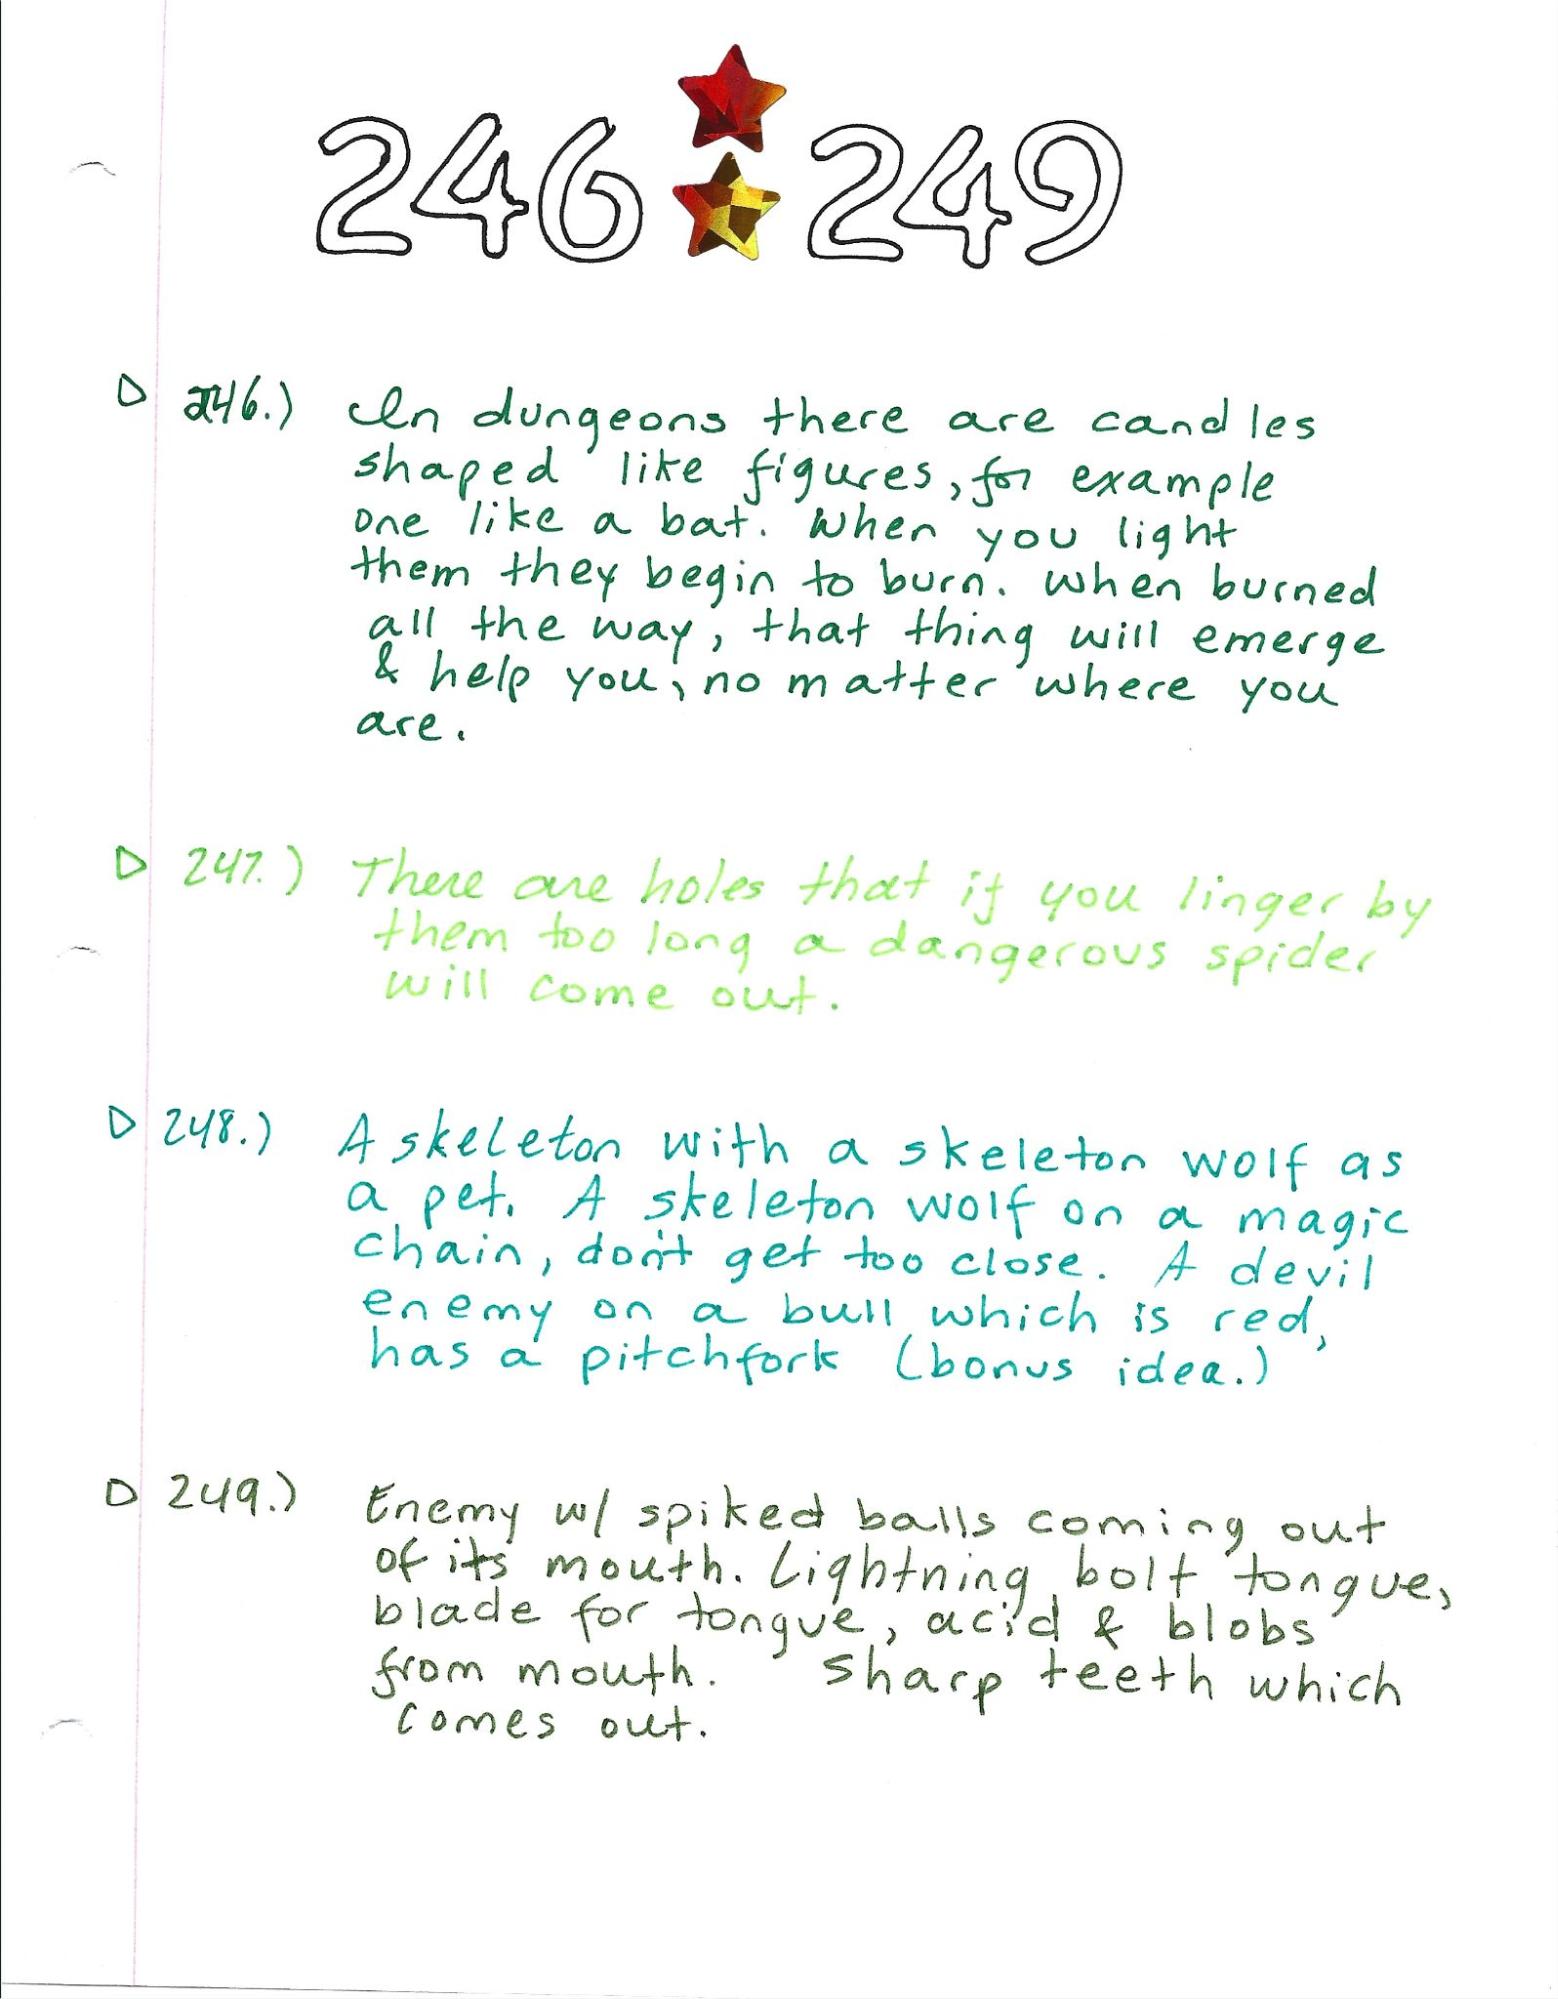 246 249
246.) In dungeons there are candles
shaped like figures, for example
one like a bat. When you light
them they begin to burn. When burned
all the way, that thing will emerge
& help you, no matter where you
are.
247.) There are holes that if you linger by
them too long a dangerous spider
will come out.
248.) A skeleton with a skeleton wolf as
a pet. A skeleton wolf on a magic
chain, don't get too close. A devil
enemy on a bull which is red,
has a pitchfork (bonus idea.)
249.) Enemy w/ spiked balls coming out
of its mouth. Lightning bolt tongue,
blade for tongue, acid & blobs
from mouth. Sharp teeth which
comes out.